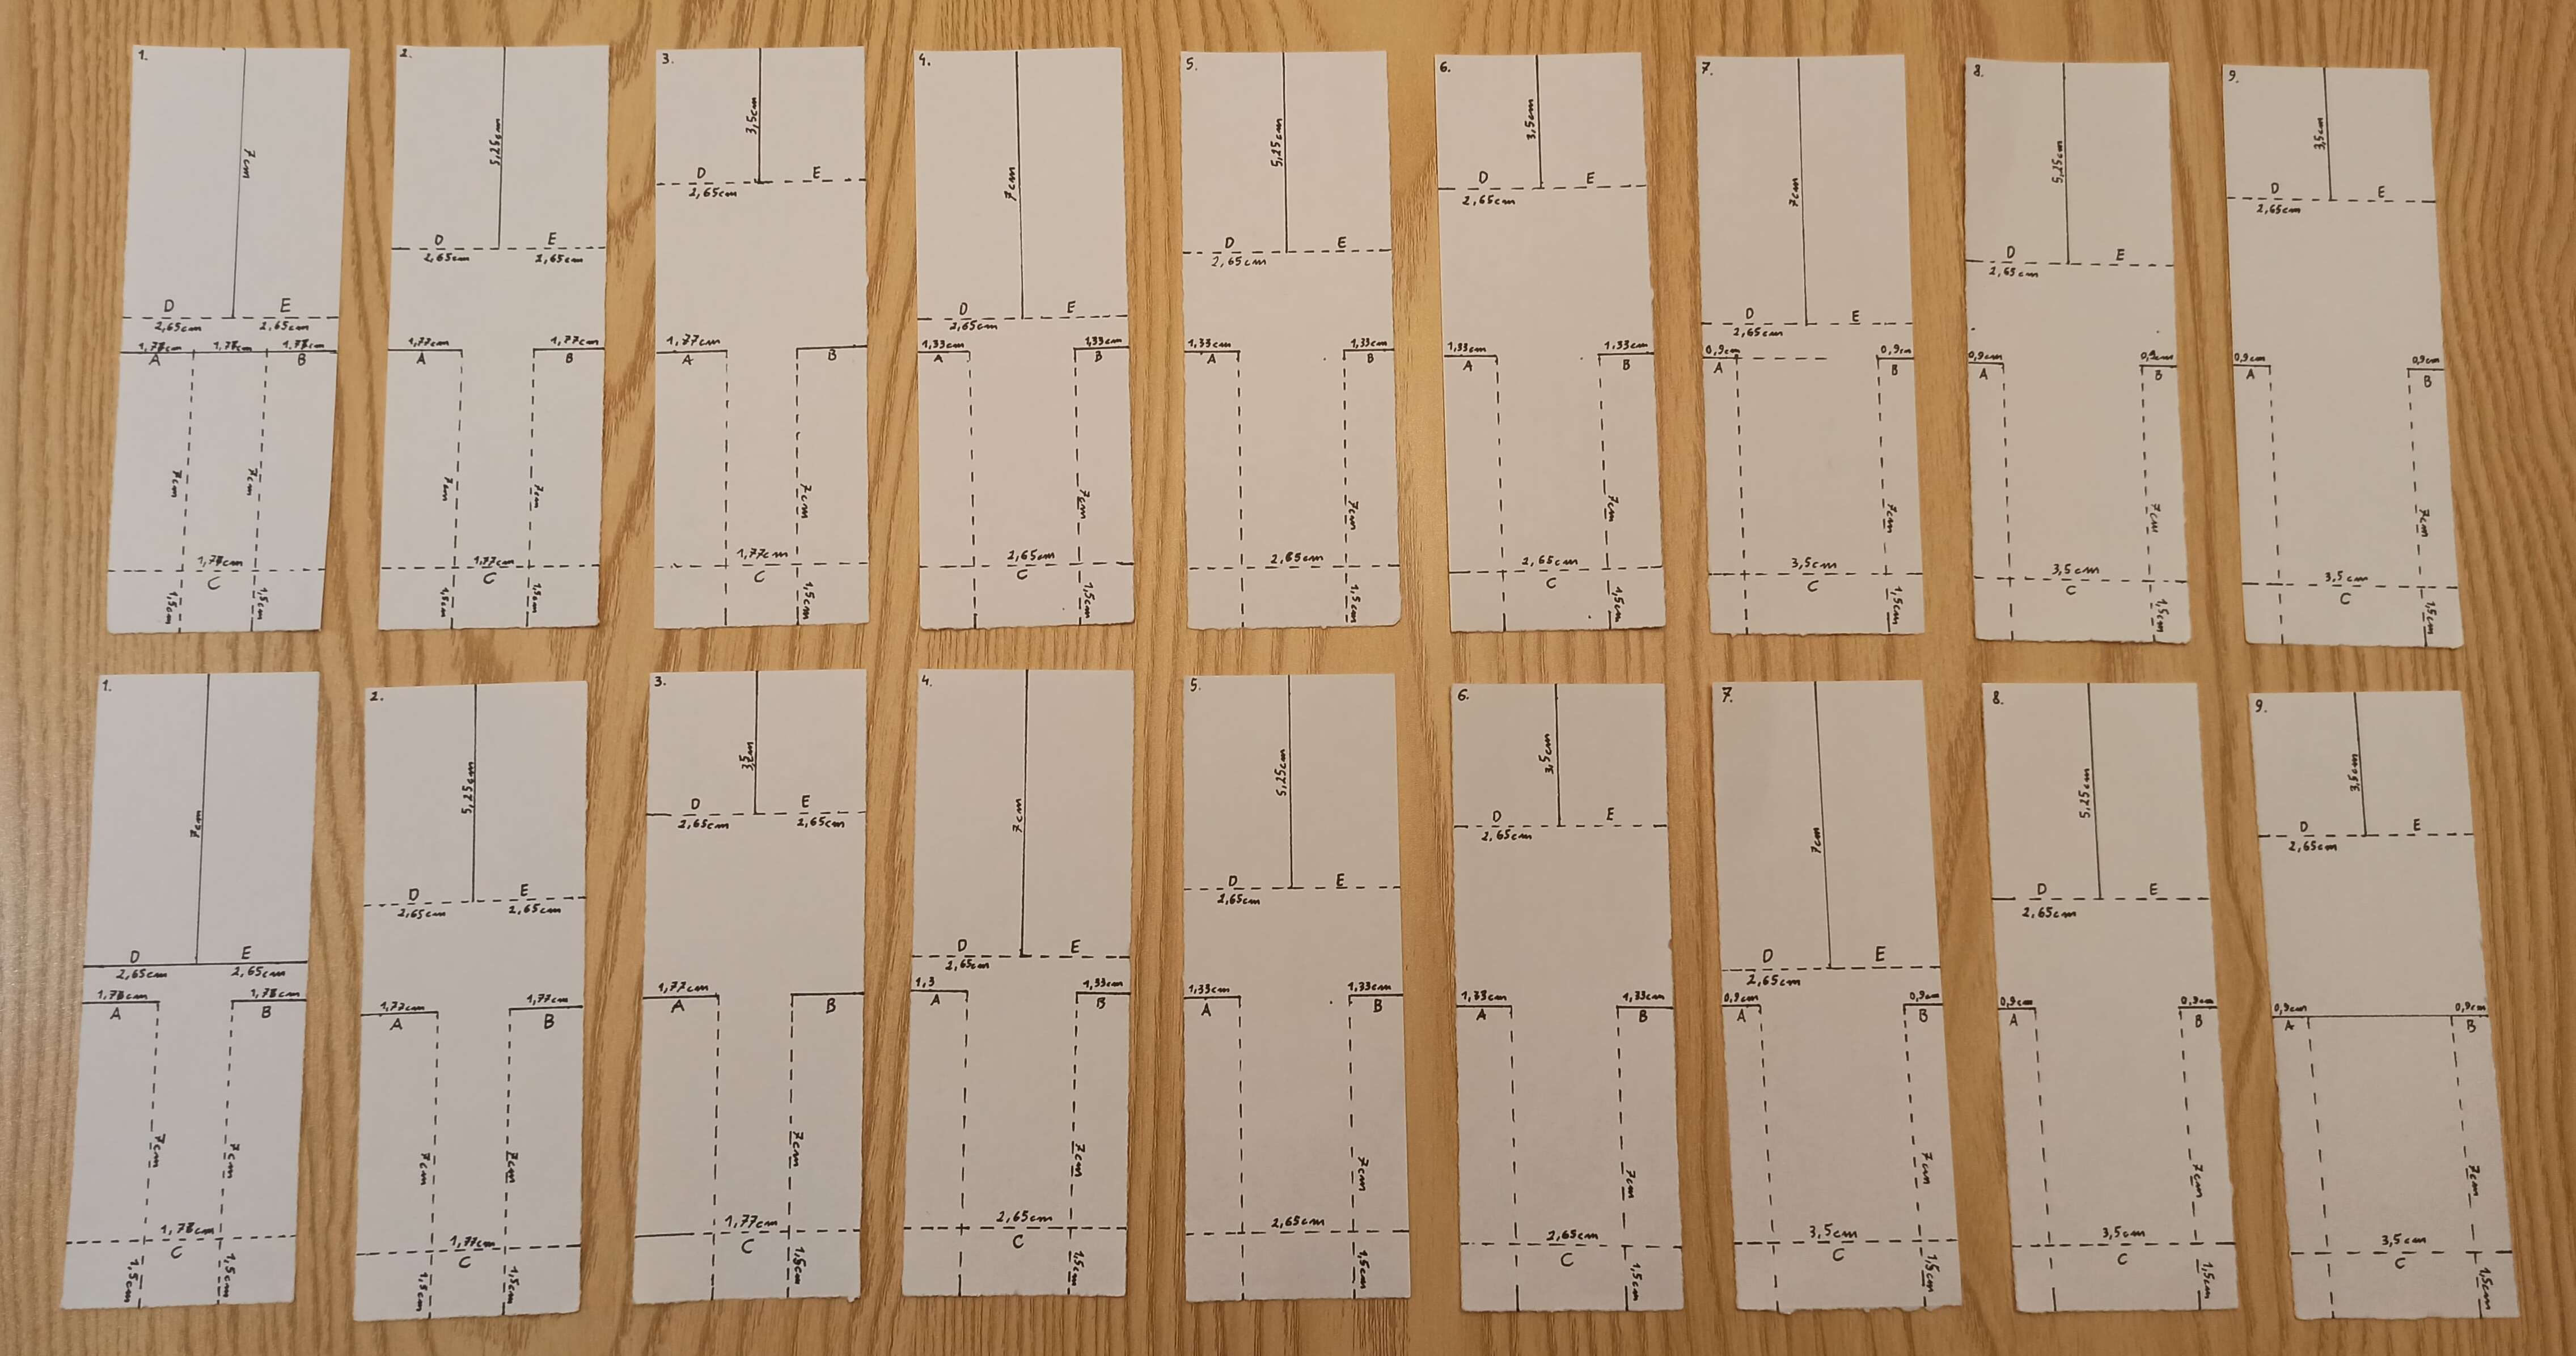 1.
7cm
D E
2,65cm 2,65cm
1,77cm 1,77cm 1,77cm
A B
7cm 7cm
1,77cm
C
1,5cm 1,5cm
2.
5,25cm
D E
2,65cm 2,65cm
1,77cm 1,77cm
A B
7cm 7cm
1,77cm
C
1,5cm 1,5cm
3.
3,5cm
D E
2,65cm
1,77cm
A B
7cm
1,77cm
C
1,5cm
4.
7cm
D E
2,65cm
1,33cm 1,33cm
A B
7cm
2,65cm
C
1,5cm
5.
5,25cm
D E
2,65cm
1,33cm 1,33cm
A B
7cm
2,65cm
1,5cm
6.
3,5cm
D E
2,65cm
1,33cm 1,33cm
A B
7cm
2,65cm
C
1,5cm
7.
7cm
D E
2,65cm
0,9cm 0,9cm
A B
7cm
3,5cm
C
1,5cm
8.
5,25cm
D E
2,65cm
0,9cm 0,9cm
A B
7cm
3,5cm
C
1,5cm
9.
3,5cm
D E
2,65cm
0,9cm 0,9cm
A B
7cm
3,5cm
C
1,5cm
1.
7cm
D E
2,65cm 2,65cm
A B
7cm 7cm
C
1,5cm 1,5cm
2.
5,25cm
D E
2,65cm 2,65cm
1,77cm 1,77cm
A B
7cm 7cm
1,77cm
C
1,5cm 1,5cm
3.
3,5cm
D E
2,65cm 2,65cm
1,77cm
A B
7cm
1,77cm
C
1,5cm
4.
7cm
D E
2,65cm
1,3 1,33cm
A B
7cm
2,65cm
C
1,5cm
5.
5,25cm
D E
2,65cm
1,33cm 1,33cm
A B
7cm
2,65cm
1,5cm
6.
3,5cm
D E
2,65cm
1,33cm 1,33cm
A B
7cm
2,65cm
C
1,5cm
7.
7cm
D E
2,65cm
0,9cm 0,9cm
A B
7cm
3,5cm
C
1,5cm
8.
5,25cm
D E
2,65cm
0,9cm 0,9cm
A B
7cm
3,5cm
C
1,5cm
9.
3,5cm
D E
2,65cm
0,9cm 0,9cm
A B
7cm
3,5cm
C
1,5cm